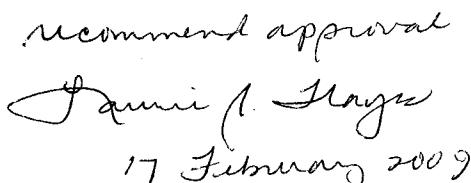 recommend approval
Laurie J. Hays
17 February 2009